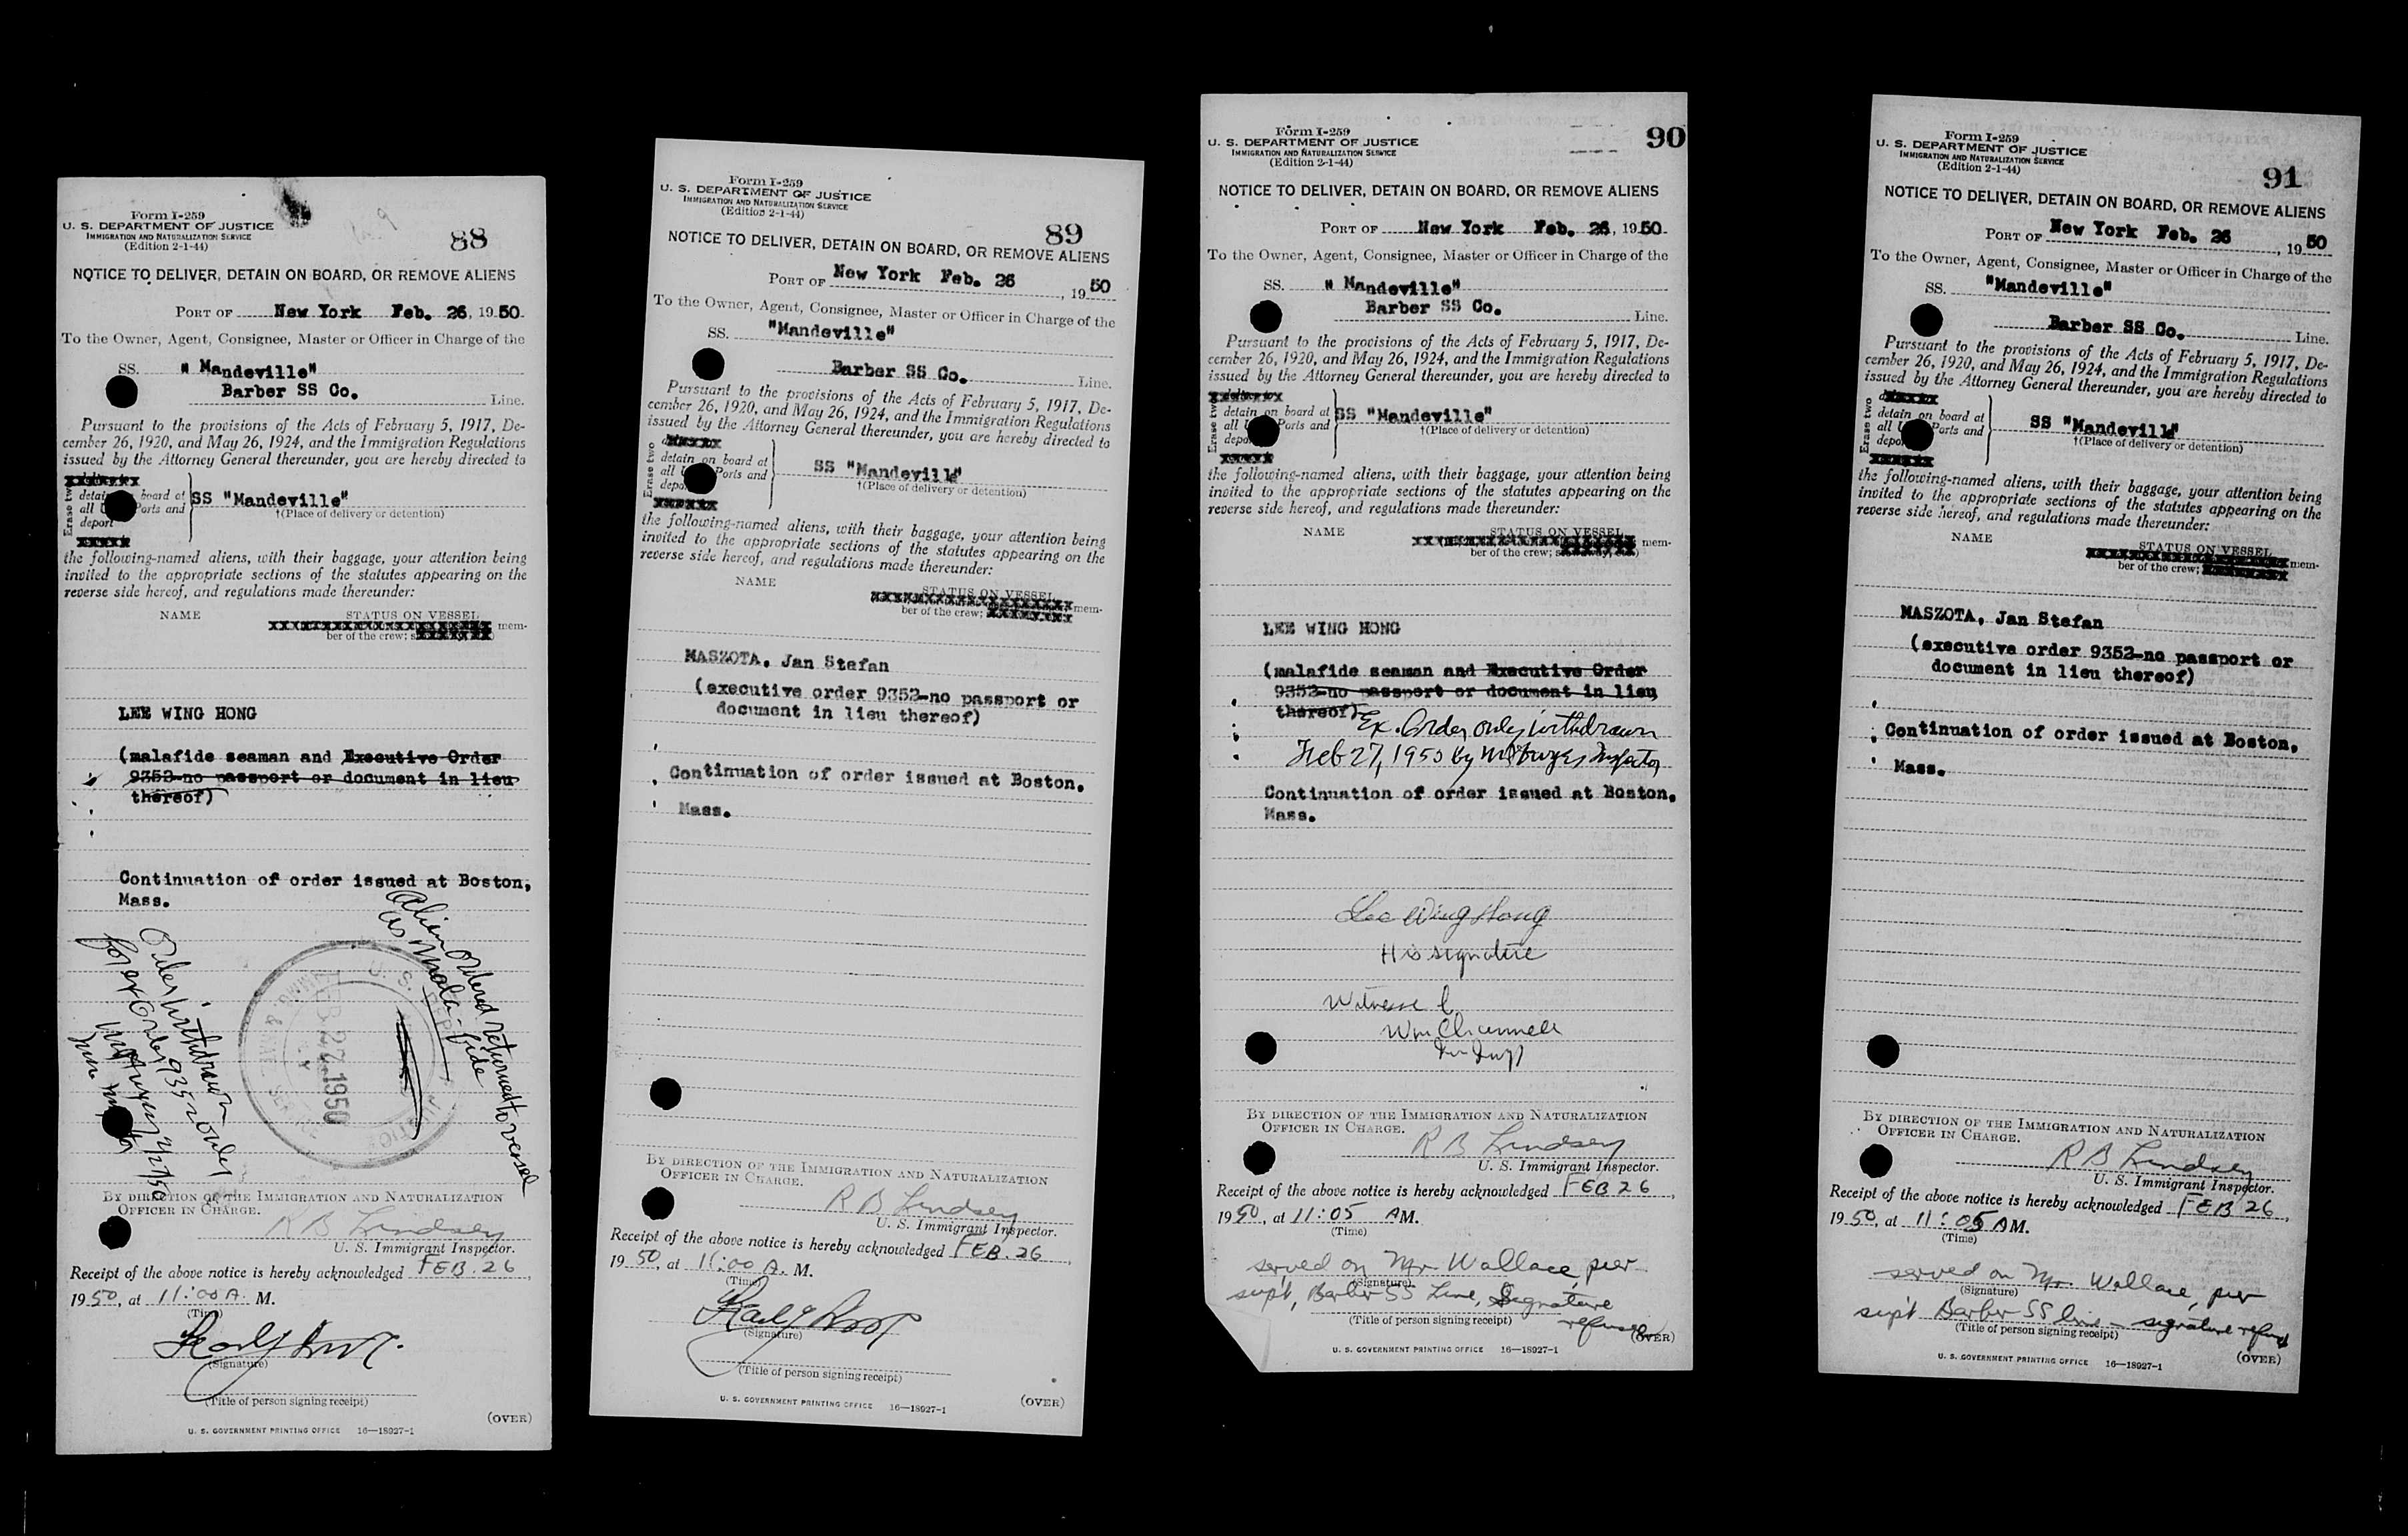 Form I-259
U. S. DEPARTMENT OF JUSTICE
IMMIGRATION AND NATURALIZATION SERVICE
(Edition 2-1-44)
88
NOTICE TO DELIVER, DETAIN ON BOARD, OR REMOVE ALIENS
PORT OF New York Feb. 26, 1950.
To the Owner, Agent, Consignee, Master or Officer in Charge of the
SS. "Mandeville"
Barber SS Co. Line.
Pursuant to the provisions of the Acts of February 5, 1917, De-
cember 26, 1920, and May 26, 1924, and the Immigration Regulations
issued by the Attorney General thereunder, you are hereby directed to
Erase two
detain board at
all U Ports and
deport
SS "Mandeville"
†(Place of delivery or detention)
the following-named aliens, with their baggage, your attention being
invited to the appropriate sections of the statutes appearing on the
reverse side hereof, and regulations made thereunder:
NAME STATUS ON VESSEL
mem-
ber of the crew;
LEE WING HONG
(malafide seaman and Executive Order
9352-no passport or document in lieu
thereof)
Continuation of order issued at Boston,
Mass.
Alien ordered returned to vessel
as mala-fide
Order withdrawn
for ex Order 9352 only
2/27/50
U. S. DEPT JUSTICE
IMMIG & NAT SERVICE
FEB 27 1950
BY DIRECTION OF THE IMMIGRATION AND NATURALIZATION
OFFICER IN CHARGE.
R B Lindsey
U. S. Immigrant Inspector.
Receipt of the above notice is hereby acknowledged FEB. 26,
1950, at 11:00 A. M.
(Time)
(Signature)
(Title of person signing receipt)
(OVER)
U. S. GOVERNMENT PRINTING OFFICE 16—18927-1
Form I-259
U. S. DEPARTMENT OF JUSTICE
IMMIGRATION AND NATURALIZATION SERVICE
(Edition 2-1-44)
89
NOTICE TO DELIVER, DETAIN ON BOARD, OR REMOVE ALIENS
PORT OF New York Feb. 26, 1950
To the Owner, Agent, Consignee, Master or Officer in Charge of the
SS. "Mandeville"
Barber SS Co. Line.
Pursuant to the provisions of the Acts of February 5, 1917, De-
cember 26, 1920, and May 26, 1924, and the Immigration Regulations
issued by the Attorney General thereunder, you are hereby directed to
Erase two
detain on board at
all U Ports and
depo
SS "Mandeville"
†(Place of delivery or detention)
the following-named aliens, with their baggage, your attention being
invited to the appropriate sections of the statutes appearing on the
reverse side hereof, and regulations made thereunder:
NAME STATUS ON VESSEL
mem-
ber of the crew;
MASZOTA, Jan Stefan
(executive order 9352-no passport or
document in lieu thereof)
Continuation of order issued at Boston,
Mass.
BY DIRECTION OF THE IMMIGRATION AND NATURALIZATION
OFFICER IN CHARGE.
R B Lindsey
U. S. Immigrant Inspector.
Receipt of the above notice is hereby acknowledged FEB. 26,
1950, at 11:00 A. M.
(Time)
(Signature)
(Title of person signing receipt)
U. S. GOVERNMENT PRINTING OFFICE 16—18927-1
(OVER)
Form I-259
U. S. DEPARTMENT OF JUSTICE
IMMIGRATION AND NATURALIZATION SERVICE
(Edition 2-1-44)
90
NOTICE TO DELIVER, DETAIN ON BOARD, OR REMOVE ALIENS
PORT OF New York Feb. 26, 1950.
To the Owner, Agent, Consignee, Master or Officer in Charge of the
SS. "Mandeville"
Barber SS Co. Line.
Pursuant to the provisions of the Acts of February 5, 1917, De-
cember 26, 1920, and May 26, 1924, and the Immigration Regulations
issued by the Attorney General thereunder, you are hereby directed to
Erase two
detain on board at
all U Ports and
depo
SS "Mandeville"
†(Place of delivery or detention)
the following-named aliens, with their baggage, your attention being
invited to the appropriate sections of the statutes appearing on the
reverse side hereof, and regulations made thereunder:
NAME STATUS ON VESSEL
mem-
ber of the crew;
LEE WING HONG
(malafide seaman and Executive Order
9352-no passport or document in lieu
thereof)
Ex. Order only withdrawn
Feb 27, 1950 by
Continuation of order issued at Boston,
Mass.
Lee Wing Hong
His signature
Witness
Wm
BY DIRECTION OF THE IMMIGRATION AND NATURALIZATION
OFFICER IN CHARGE.
R B Lindsey
U. S. Immigrant Inspector.
Receipt of the above notice is hereby acknowledged FEB 26,
1950, at 11:05 AM.
(Time)
served on Mr. Wallace, pier
(Signature)
supt, Barber SS Line, Signature
refused
(Title of person signing receipt)
(OVER)
U. S. GOVERNMENT PRINTING OFFICE 16—18927-1
Form I-259
U. S. DEPARTMENT OF JUSTICE
IMMIGRATION AND NATURALIZATION SERVICE
(Edition 2-1-44)
91
NOTICE TO DELIVER, DETAIN ON BOARD, OR REMOVE ALIENS
PORT OF New York Feb. 26, 1950
To the Owner, Agent, Consignee, Master or Officer in Charge of the
SS. "Mandeville"
Barber SS Co. Line.
Pursuant to the provisions of the Acts of February 5, 1917, De-
cember 26, 1920, and May 26, 1924, and the Immigration Regulations
issued by the Attorney General thereunder, you are hereby directed to
Erase two
detain on board at
all U Ports and
depo
SS "Mandeville"
†(Place of delivery or detention)
the following-named aliens, with their baggage, your attention being
invited to the appropriate sections of the statutes appearing on the
reverse side hereof, and regulations made thereunder:
NAME STATUS ON VESSEL
mem-
ber of the crew;
MASZOTA, Jan Stefan
(executive order 9352-no passport or
document in lieu thereof)
Continuation of order issued at Boston,
Mass.
BY DIRECTION OF THE IMMIGRATION AND NATURALIZATION
OFFICER IN CHARGE.
R B Lindsey
U. S. Immigrant Inspector.
Receipt of the above notice is hereby acknowledged FEB 26,
1950, at 11:05 AM.
(Time)
served on Mr. Wallace, pier
(Signature)
sup't Barber SS line - signature refused
(Title of person signing receipt)
(OVER)
U. S. GOVERNMENT PRINTING OFFICE 16—18927-1